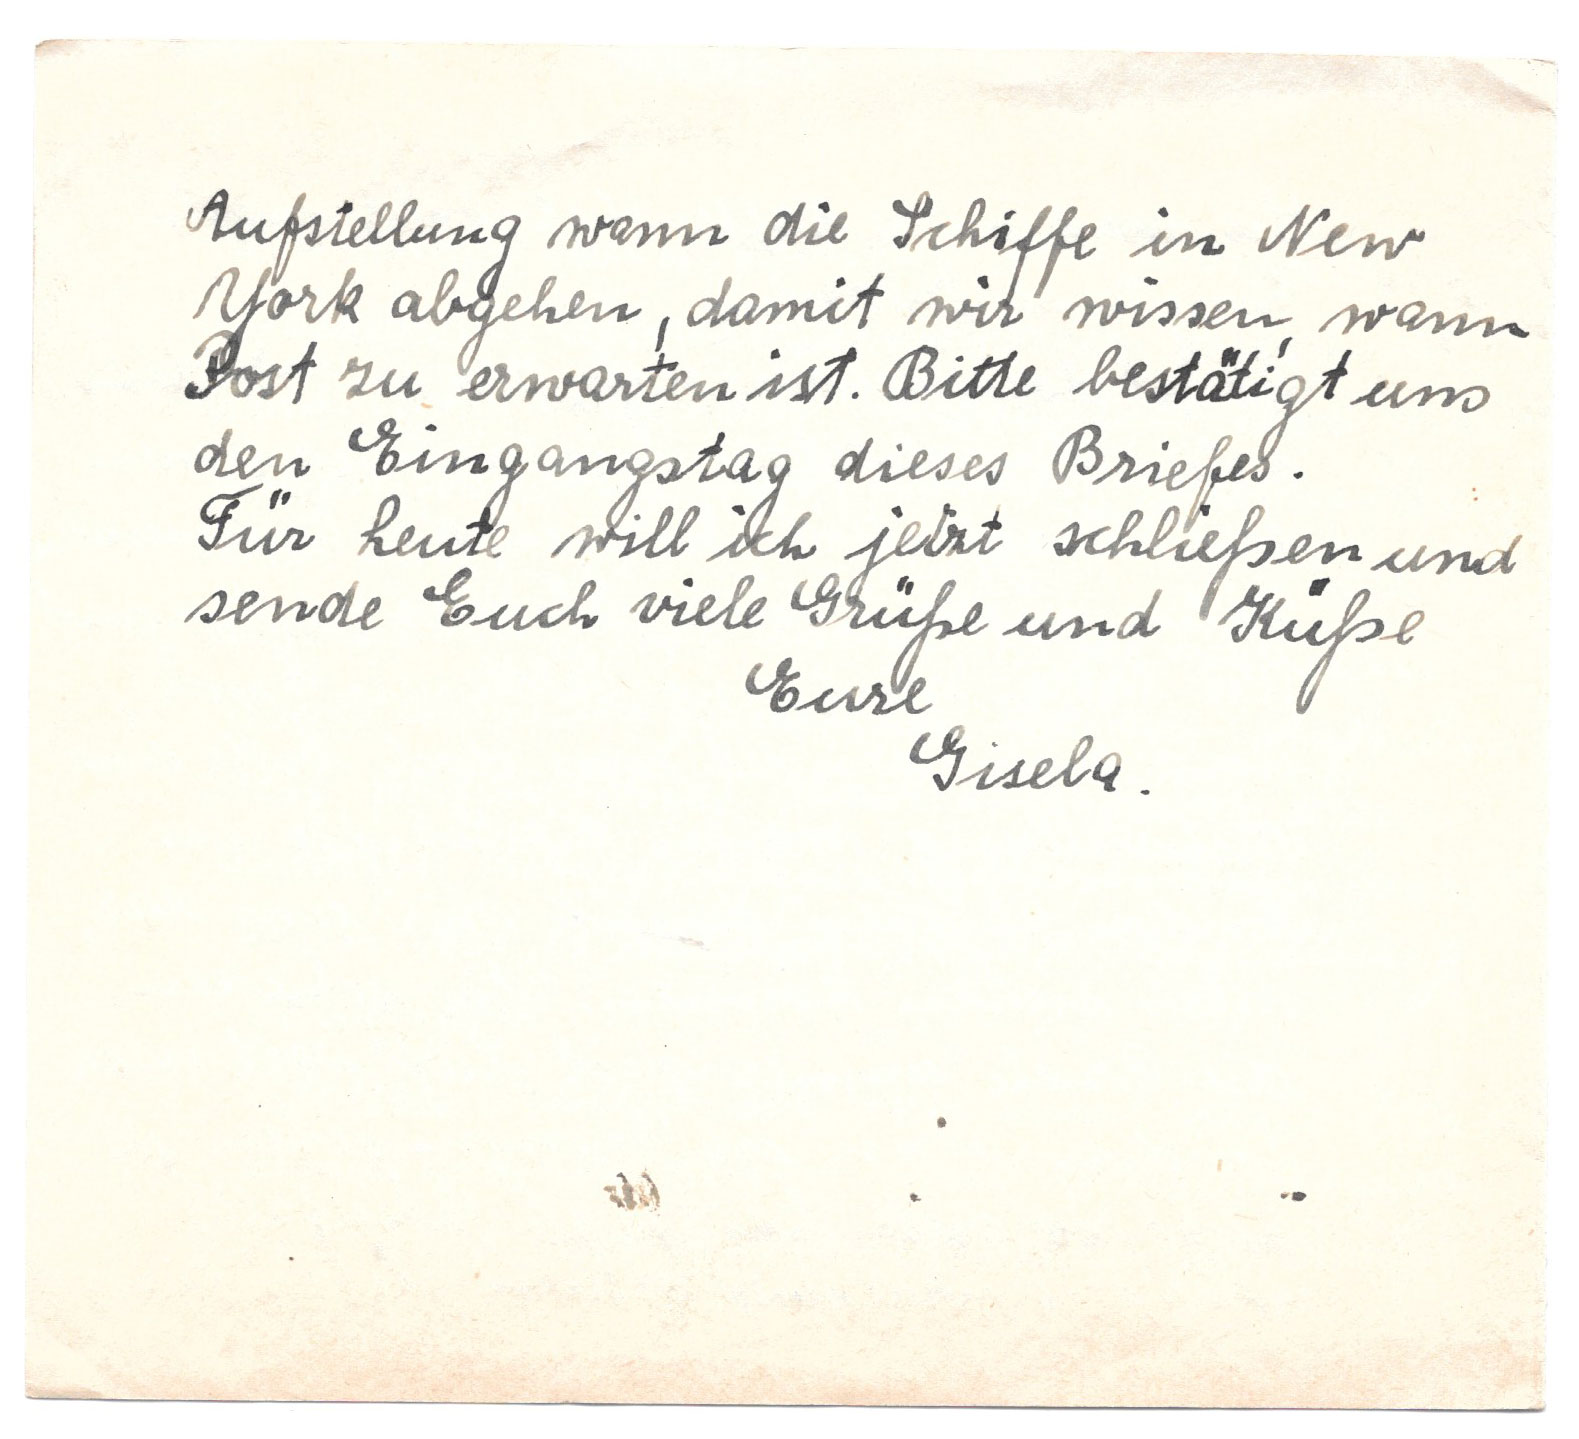 Aufstellung wann die Schiffe in New
York abgehen, damit wir wissen, wann
Post zu erwarten ist. Bitte bestätigt uns
den Eingangstag dieses Briefes.
Für heute will ich jetzt schließen und
sende Euch viele Grüße und Küße
Eure
Gisela.